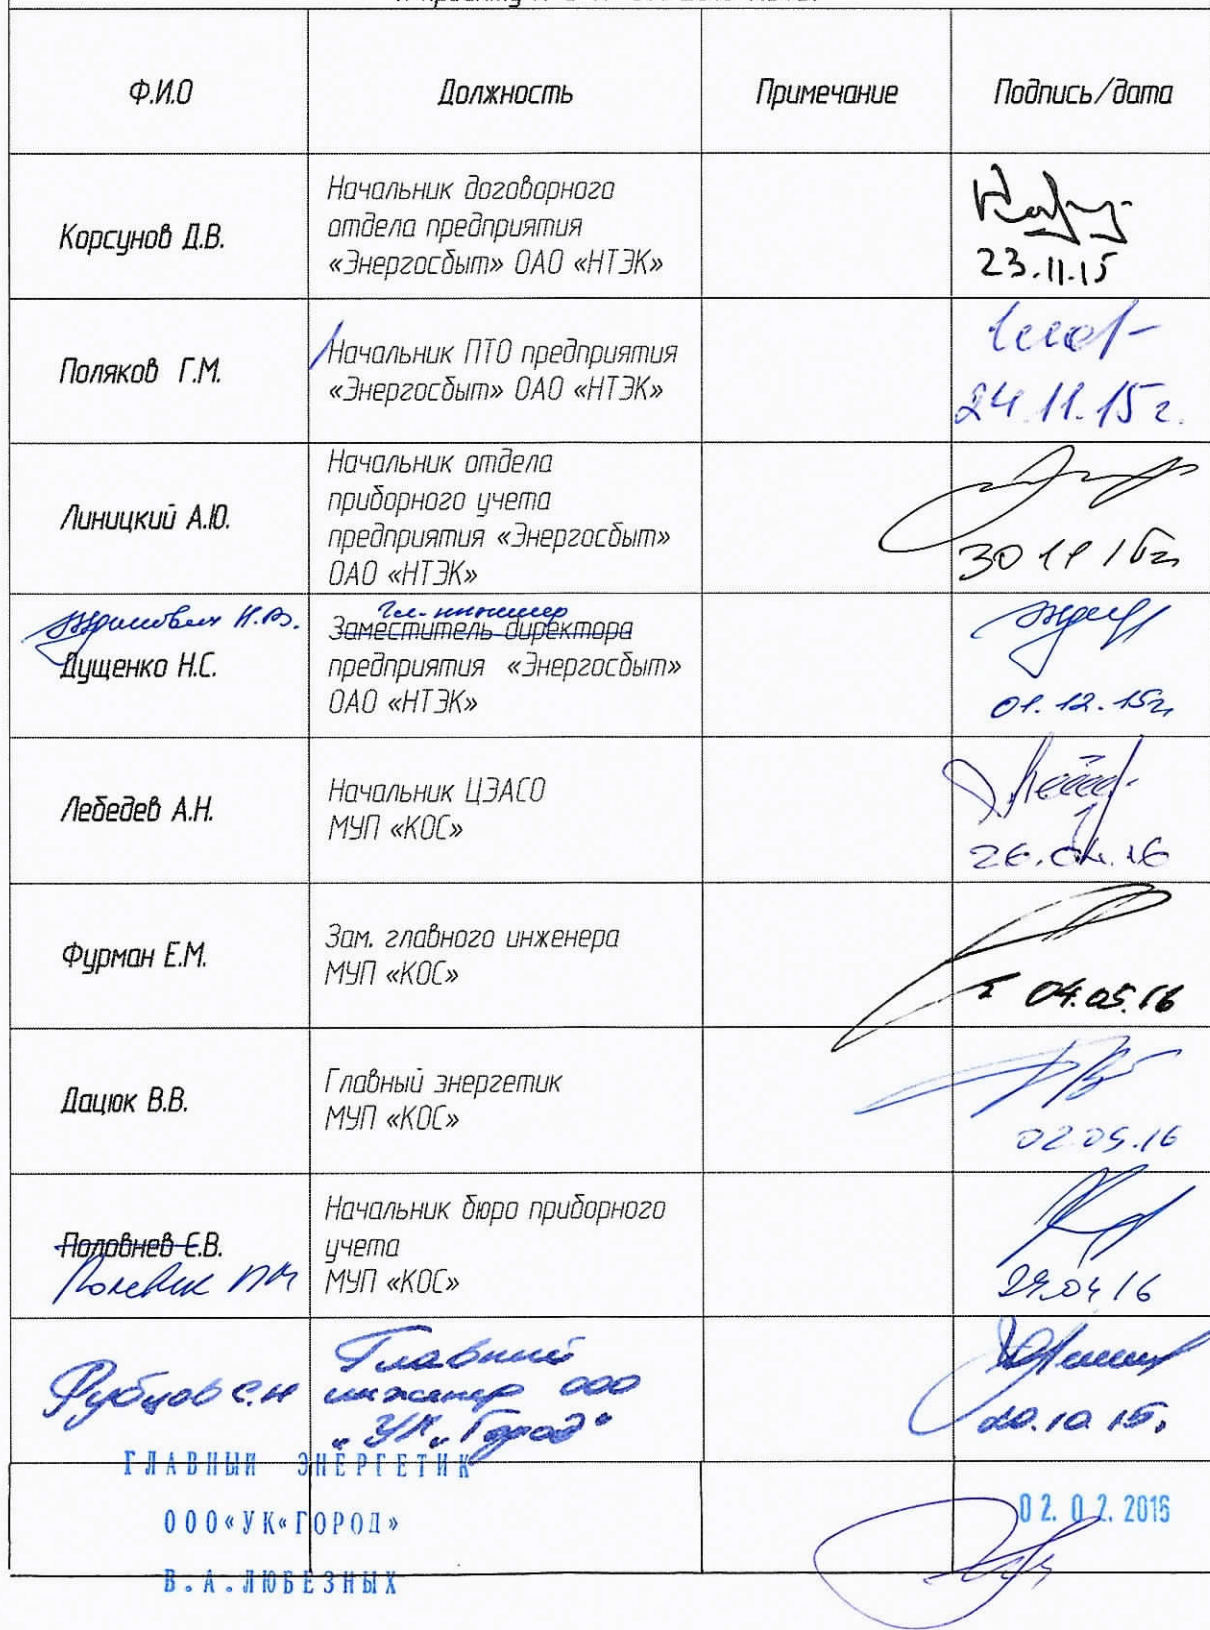 Ф.И.О
Должность
Примечание
Подпись/дата
Корсунов Д.В.
Начальник договорного
отдела предприятия
«Энергосбыт» ОАО «НТЭК»
23.11.15
Поляков Г.М.
Начальник ПТО предприятия
«Энергосбыт» ОАО «НТЭК»
24.11.15г.
Линицкий А.Ю.
Начальник отдела
приборного учета
предприятия «Энергосбыт»
ОАО «НТЭК»
30 11 15г
Н.В.
Дущенко Н.С.
Гл. инженер
Заместитель директора
предприятия «Энергосбыт»
ОАО «НТЭК»
01.12.15г
Лебедев А.Н.
Начальник ЦЭАСО
МУП «КОС»
26.04.16
Фурман Е.М.
Зам. главного инженера
МУП «КОС»
04.05.16
Дацюк В.В.
Главный энергетик
МУП «КОС»
02.05.16
Половнев Е.В.
Начальник бюро приборного
учета
МУП «КОС»
29.04 16
Рубцов С.Н
Главный
инженер ООО
"УК "Город"
20.10 15.
ГЛАВНЫЙ ЭНЕРГЕТИК
ООО«УК«ГОРОД»
В.А.ЛЮБЕЗНЫХ
02.02.2016